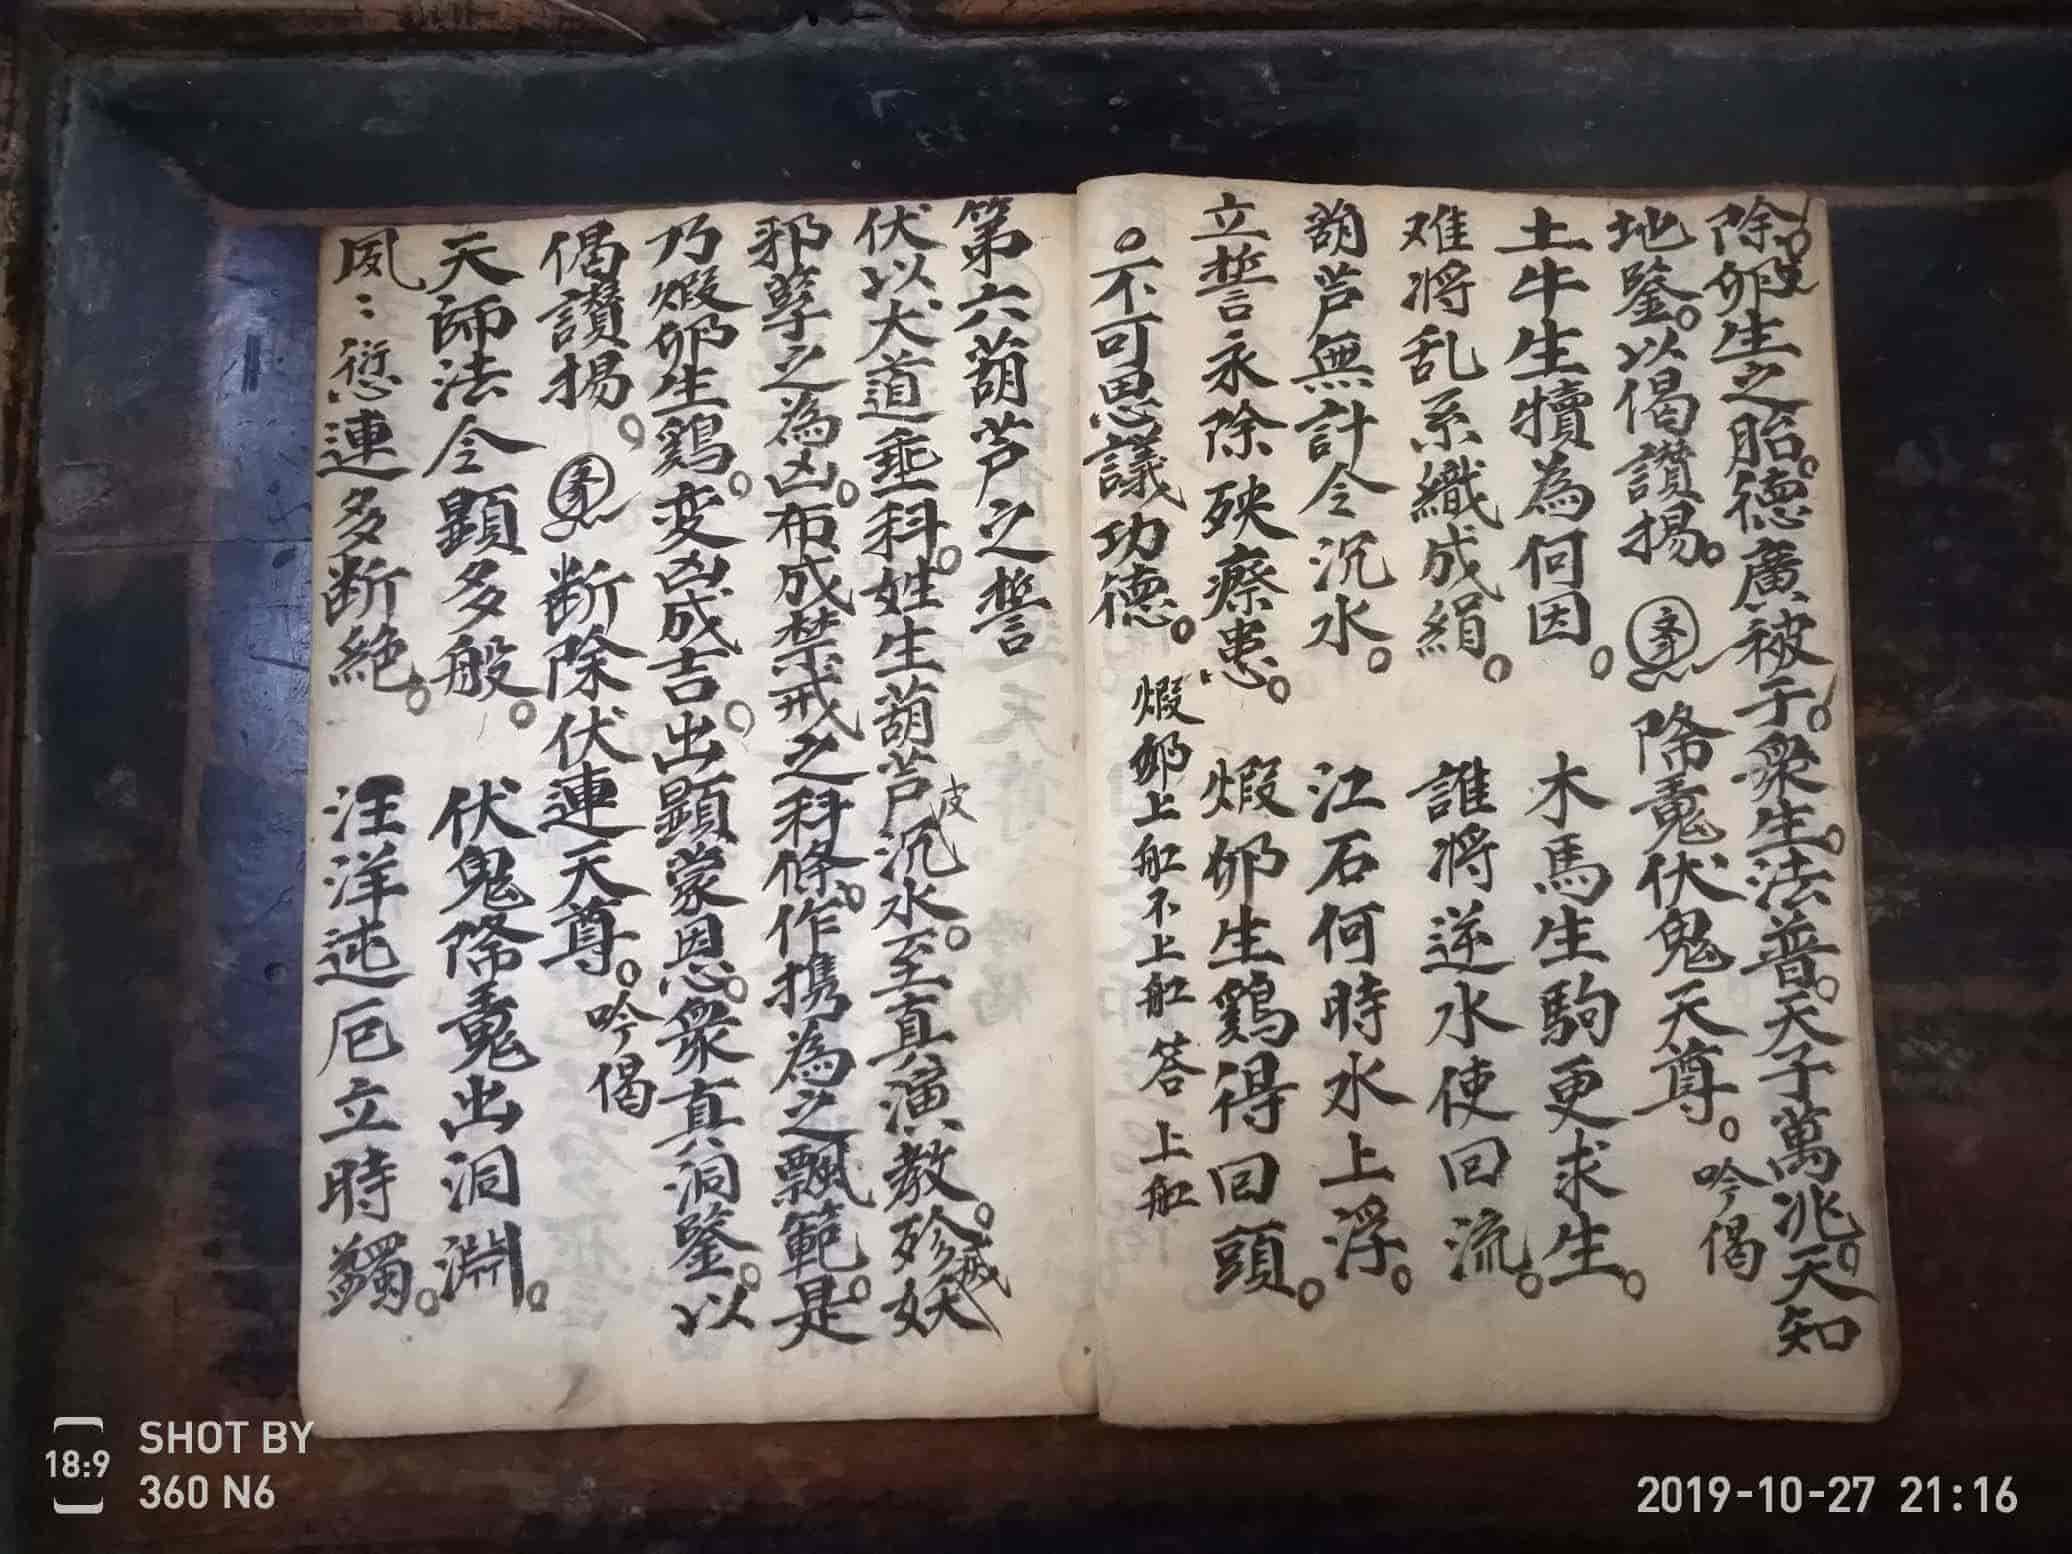 除卵生之胎。德廣被于。衆生。法普。天子萬兆。天知
地鑒。以偈讃揚。降魔伏鬼天尊。吟偈
土牛生犢為何因。 木馬生駒更求生。
难將乱系織成絹。 誰將逆水使回流。
葫芦無計令沉水。 江石何時水上浮。
立誓永除殃瘵患。 煆卵生鷄得回頭。
不可思議功德。 煆卵上船不上船答上船
第六葫芦之誓
伏以大道垂科。姓生葫芦皮沉水。至真演教。殄滅妖
邪孽之為凶。布成禁戒之科條。作携為之飄範。是
乃煆卵生鷄。变凶成吉。出顕蒙恩。衆真洞鑒。以
偈讃揚。 断除伏連天尊。吟偈
天師法令顕多般。 伏鬼降魔出洞淵。
夙：愆連多断絶。 汪洋迍厄立時蠲。
SHOT BY
360 N6
18:9
2019-10-27 21:16